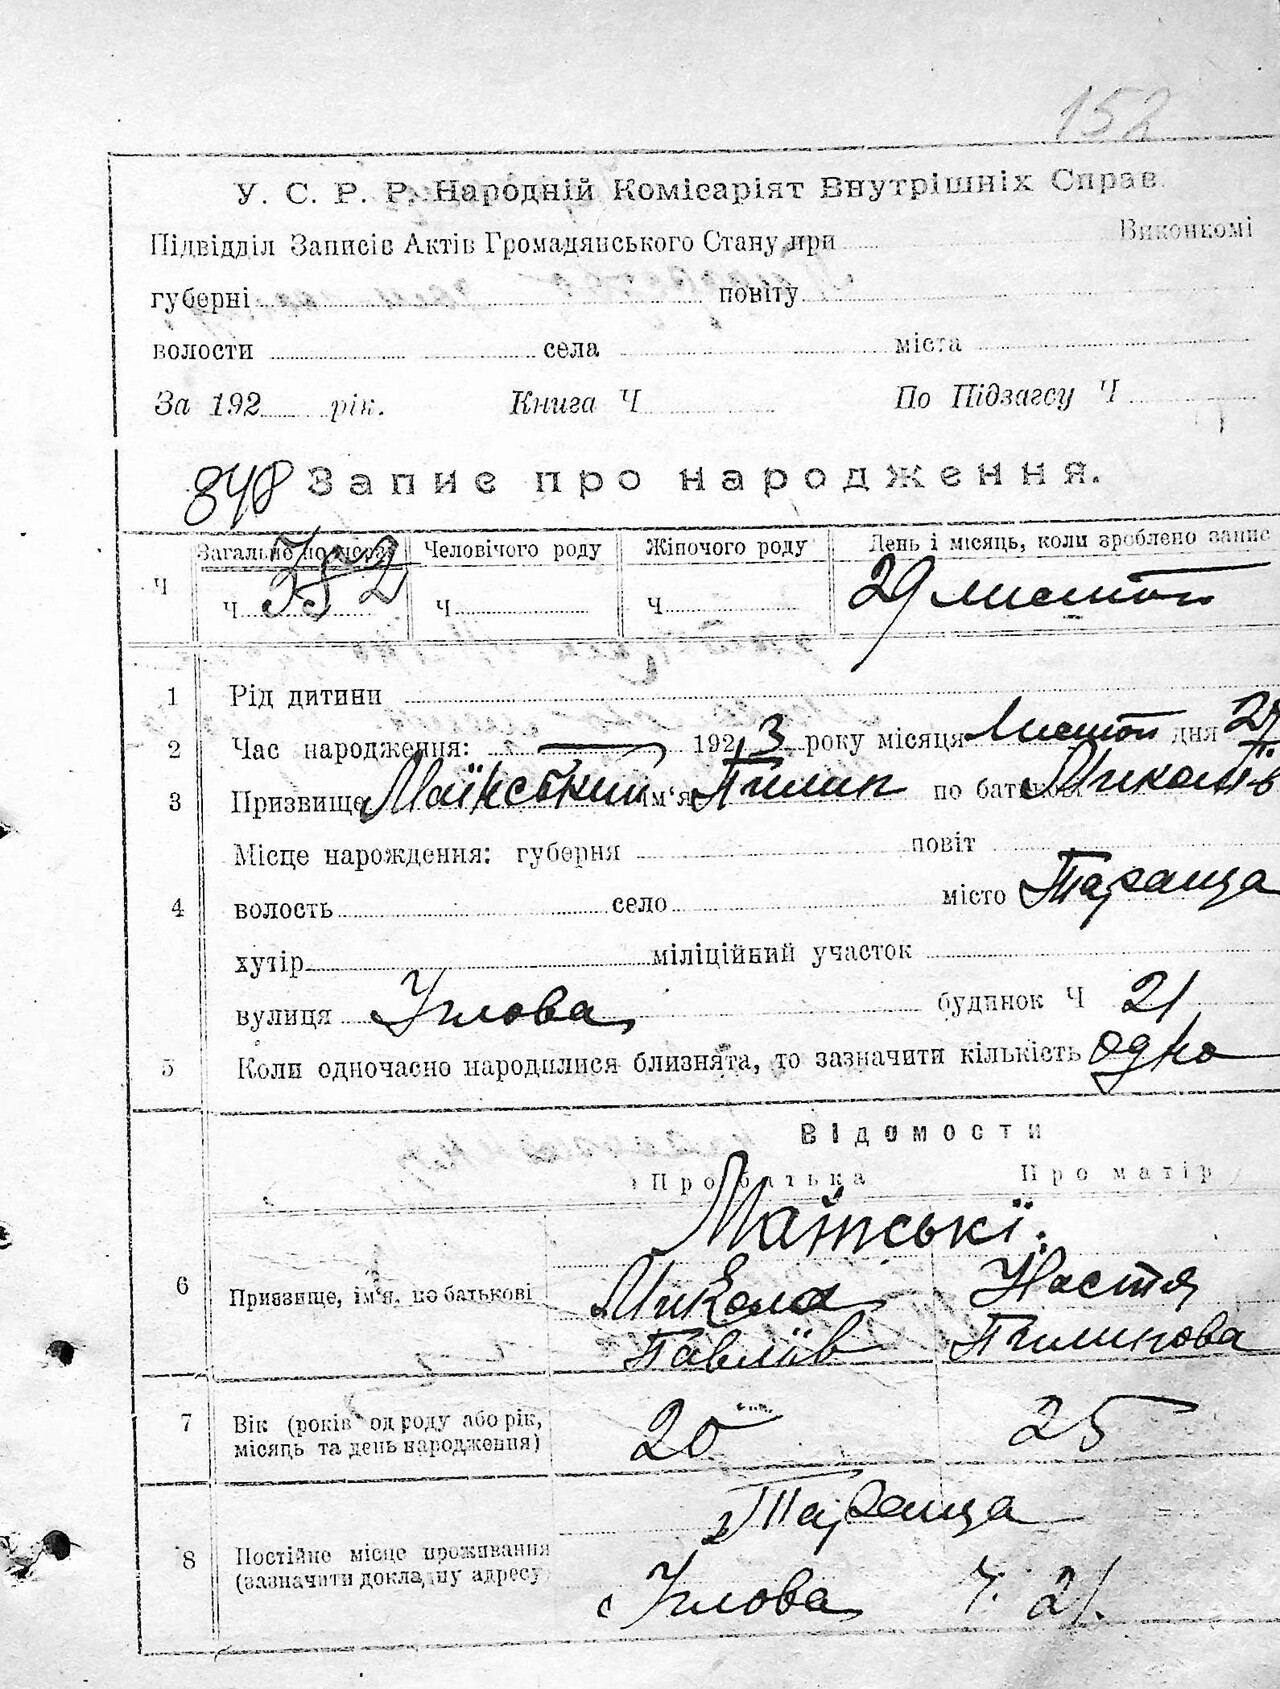 152
У. С. Р. Р. Народній Комісаріят Внутрішніх Справ.
Підвідділ Записів Актів Громадянського Стану при Виконкомі
губерні повіту
волости села міста
За 192 рік. Книга Ч По Підзагсу Ч
848 Запис про народження.
Загальне по Човічого роду Жіночого роду День і місяць, коли зроблено запис
Ч Ч 352 Ч Ч 29 листоп
1 Рід дитини
2 Час народження: 1923 року місяця Листоп дня
3 Призвище Маїнський ім'я Пилип по батькові Миколаїв
Місце народження: губерня повіт
4 волость село місто Тараща
хутір міліційний участок
вулиця Углова будинок Ч 21
5 Коли одночасно народилися близнята, то зазначити кількість одно
Відомости
Про батька Про матір
6 Призвище, ім'я, по батькові
Микола Настя
Павлів Пилипова
7 Вік (років од роду або рік, місяць та день народження) 20 25
Тараща
8 Постійне місце проживання
(зазначити докладну адресу) Углова Ч. 21.